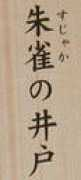 朱雀の井戸
すじゃか